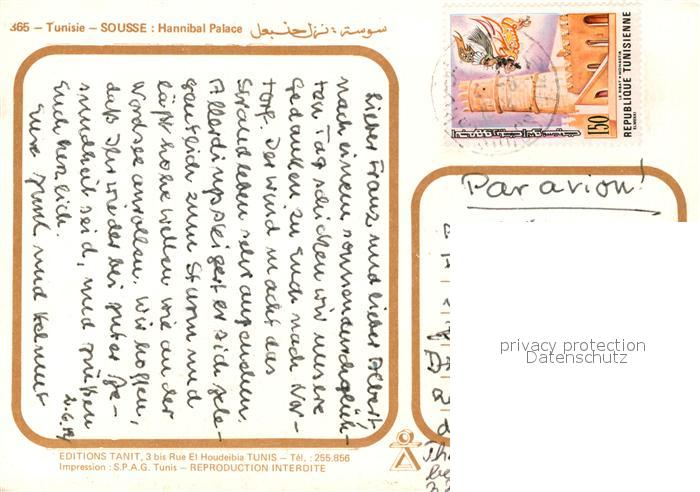 365 – Tunisie – SOUSSE : Hannibal Palace سوسة : نزل حنبعل
Lieber Franz und lieber Albert
nach einem sonnendurchglüh-
ten Tag schicken wir unsere
Gedanken zu Euch nach
Der Wind macht das
Strandleben sehr angenehm.
Allerdings steigert er sich gele-
gentlich zum Sturm und
läßt hohe Wellen wie an der
Nordsee anrollen. Wir hoffen,
daß Ihr wieder bei guter Ge-
sundheit seid, und grüßen
Euch herzlich.
Eure und Helmut
2.6.
EDITIONS TANIT, 3 bis Rue El Houdeibia TUNIS – Tél. : 255.856
Impression : S.P.A.G. Tunis – REPRODUCTION INTERDITE
REPUBLIQUE TUNISIENNE
150
Par avion!
privacy protection
Datenschutz